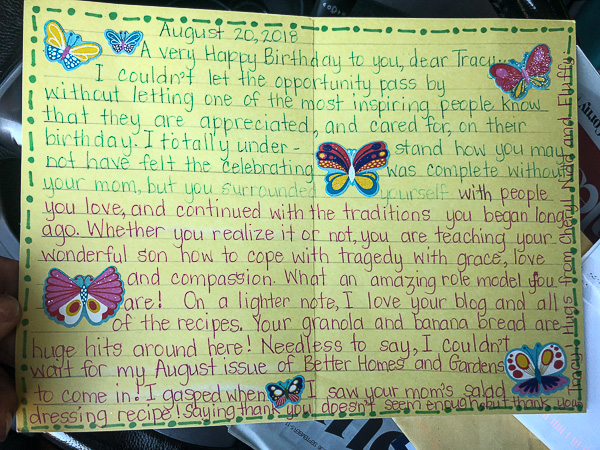 August 20, 2018
A very Happy Birthday to you, dear Tracy...
I couldn't let the opportunity pass by
without letting one of the most inspiring people know
that they are appreciated, and cared for, on their
birthday. I totally under- stand how you may
not have felt the celebrating was complete without
your mom, but you surrounded yourself with people
you love, and continued with the traditions you began long
ago. Whether you realize it or not, you are teaching your
wonderful son how to cope with tragedy with grace, love
and compassion. What an amazing role model you
are! On a lighter note, I love your blog and all
of the recipes. Your granola and banana bread are
huge hits around here! Needless to say, I couldn't
wait for my August issue of Better Homes and Gardens
to come in! I gasped when I saw your mom's salad
dressing recipe! Saying thank you doesn't seem enough, but thank you,
Tracy! Hugs from Cheryl, Niad and Fluffy